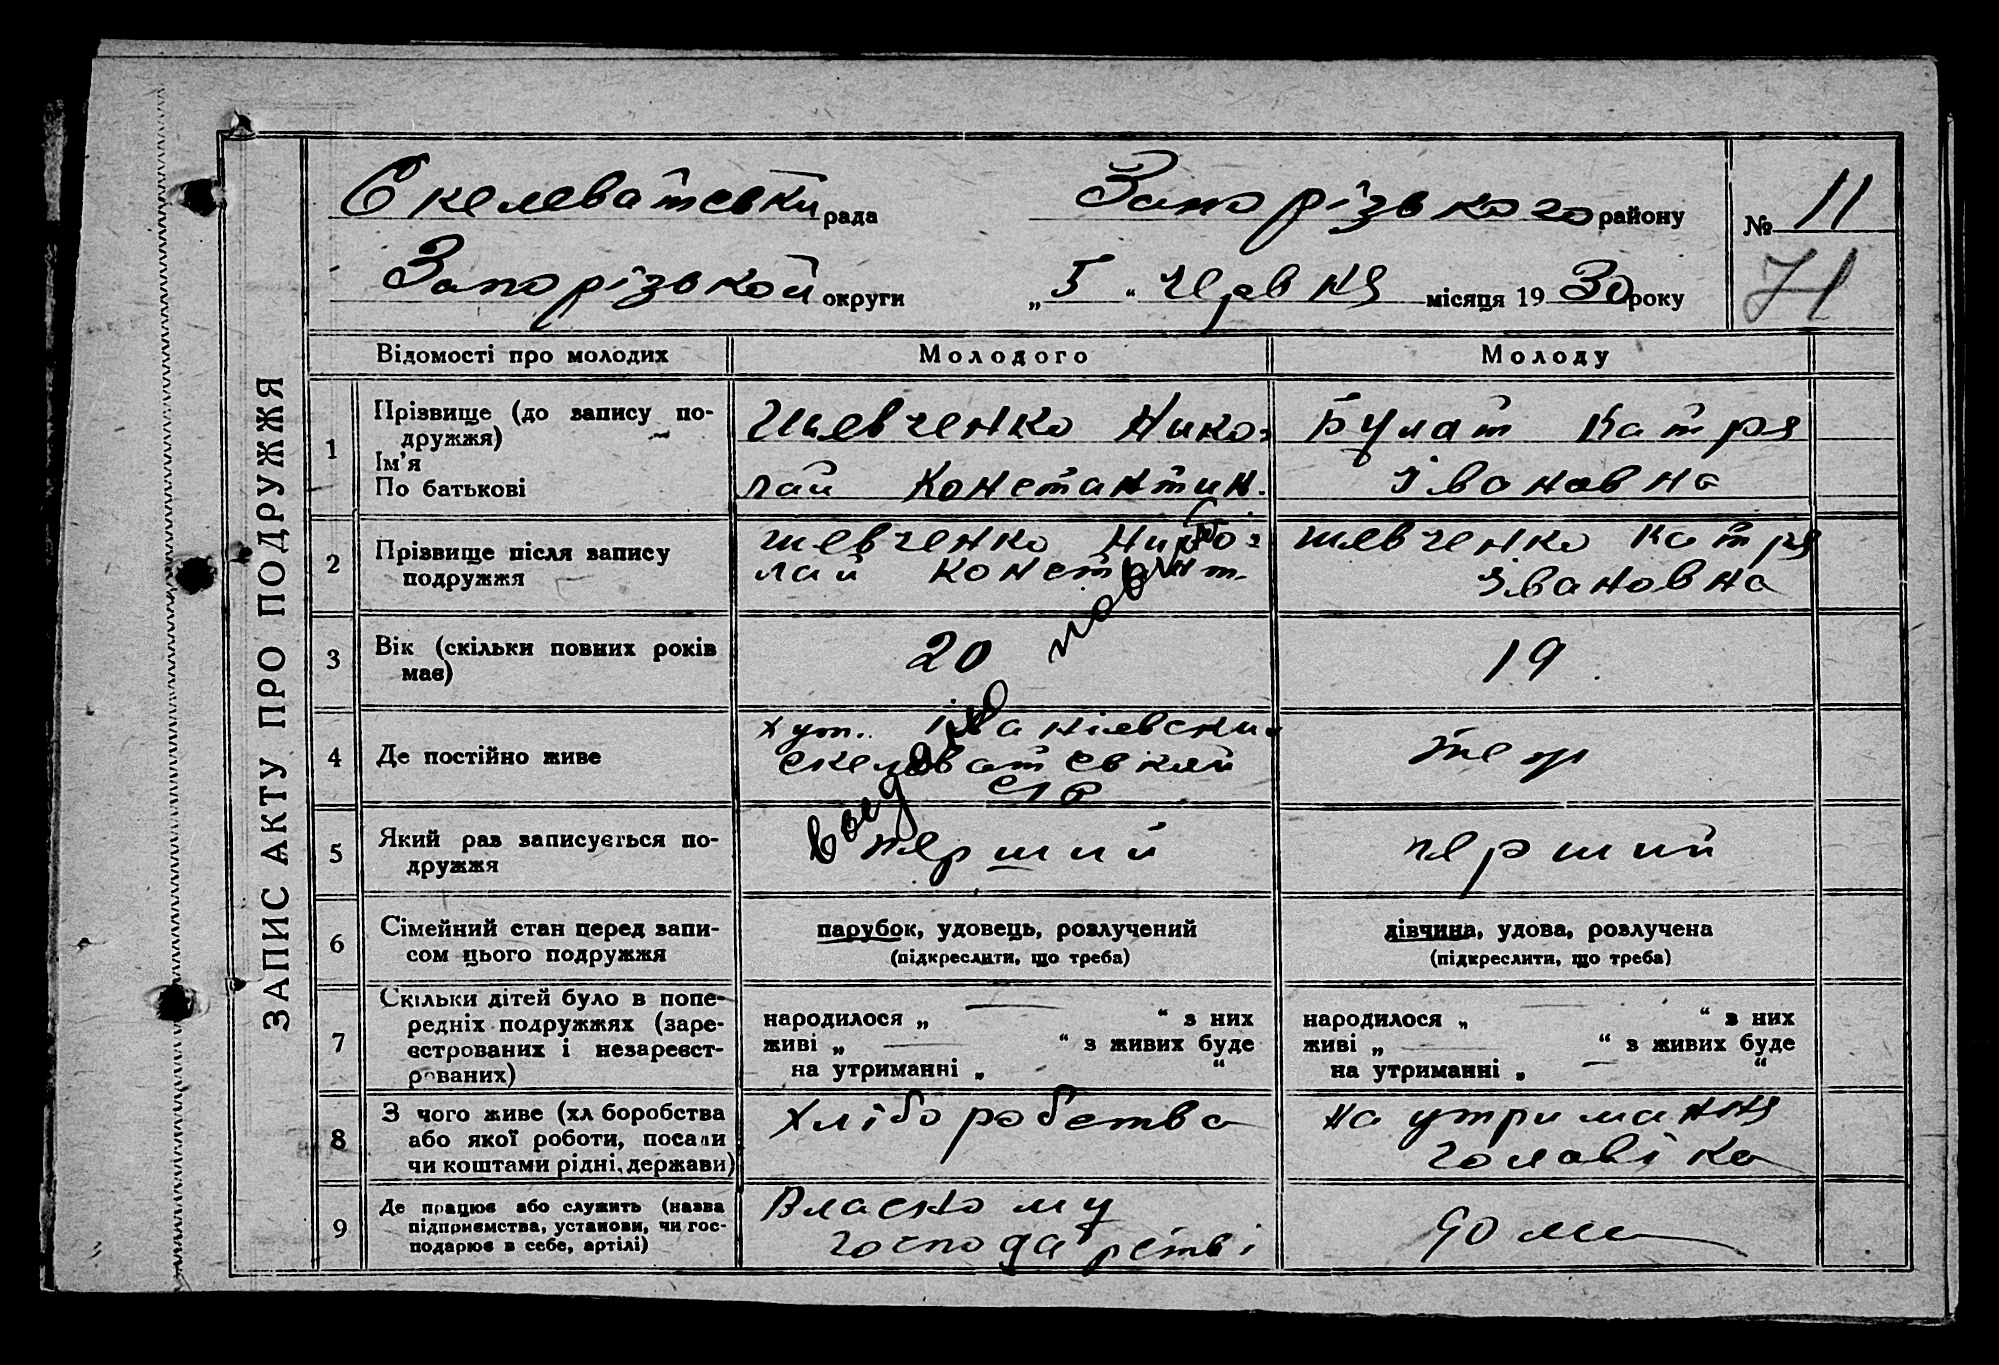 ЗАПИС АКТУ ПРО ПОДРУЖЖЯ
Скелеватська рада Запорізького району № 11
Запорізькой округи „5“ червня місяця 1930 року
Відомості про молодих Молодого Молоду
1 Прізвище (до запису подружжя)
Ім'я
По батькові
Шевченко Нико-
лай Константин.
Булат Катря
Івановна
2 Прізвище після запису
подружжя
шевченко Нико-
лай Констант.
шевченко Катря
Івановна
3 Вік (скільки повних років
має)
20
19
4 Де постійно живе
хут.
скелеватськай
с/р
теж
5 Який раз записується по-
дружжя
перший
перший
6 Сімейний стан перед запи-
сом цього подружжя
парубок, удовець, розлучений
(підкреслити, що треба)
дівчина, удова, розлучена
(підкреслити, що треба)
7 Скільки дітей було в попе-
редніх подружжях (заре-
єстрованих і незареєст-
рованих)
народилося „ — “ з них
живі „ — “ з живих буде
на утриманні „ “
народилося „ — “ з них
живі „ — “ з живих буде
на утриманні „ — “
8 З чого живе (хліборобства
або якої роботи, посади
чи коштами рідні, держави)
хліборобства
на утримання
чоловіка
9 Де працює або служить (назва
підприємства, установи, чи гос-
подарює в себе, артілі)
Власному
господарстві
дома